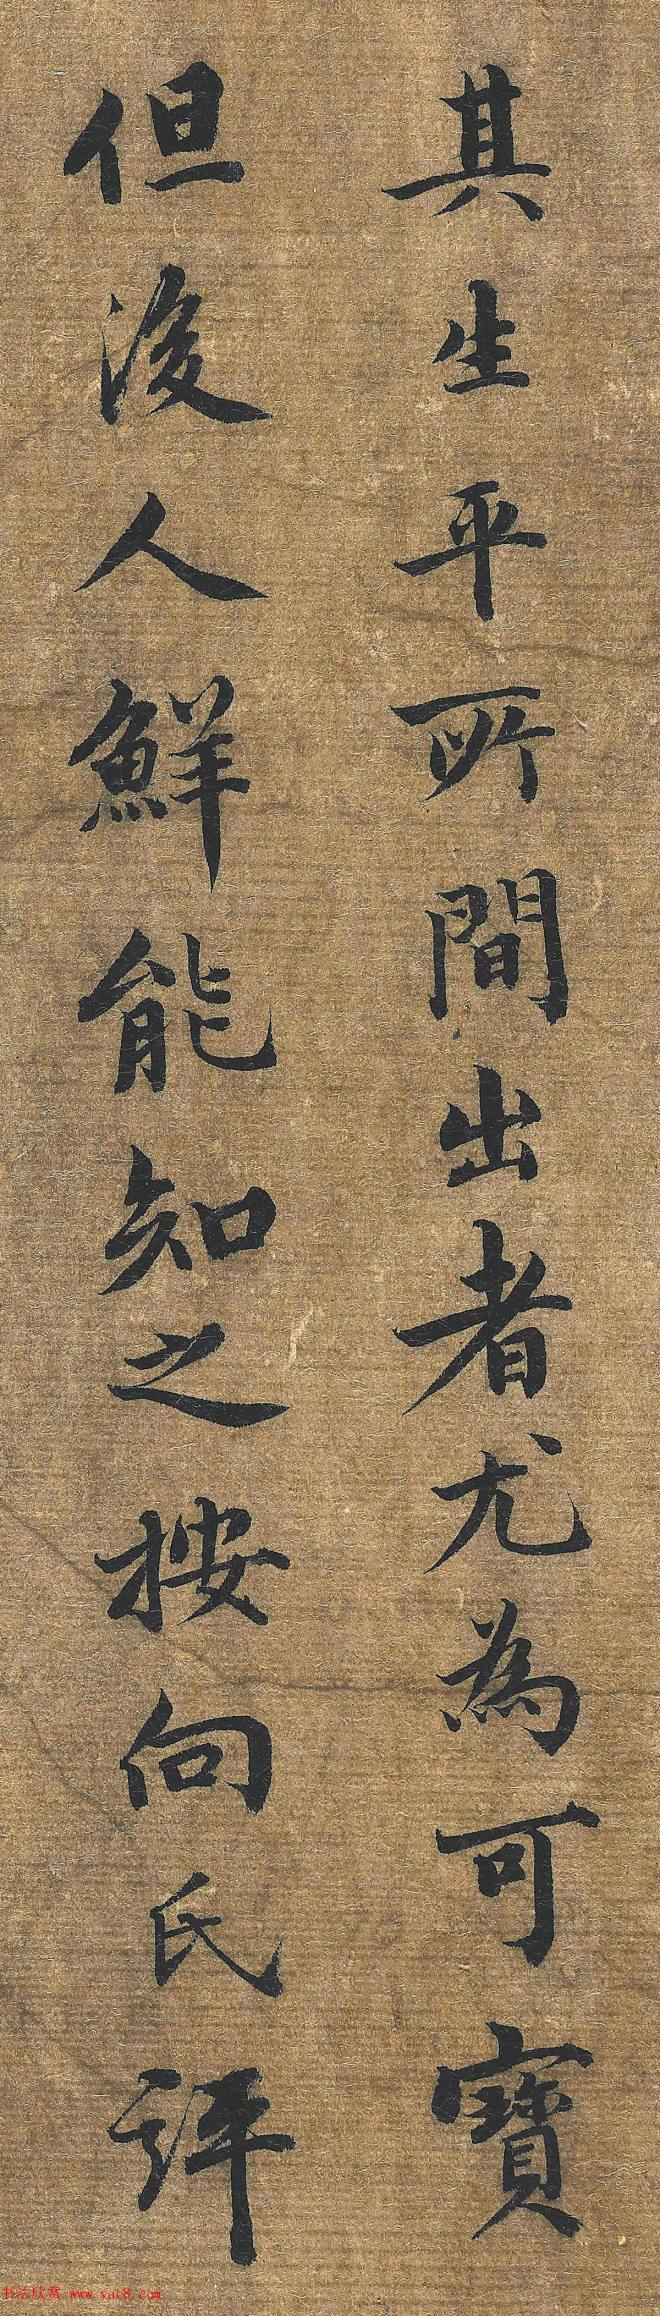 其生平所間出者尤為可寶
但後人鮮能知之按向氏評
书法欣赏 www.yac8.com